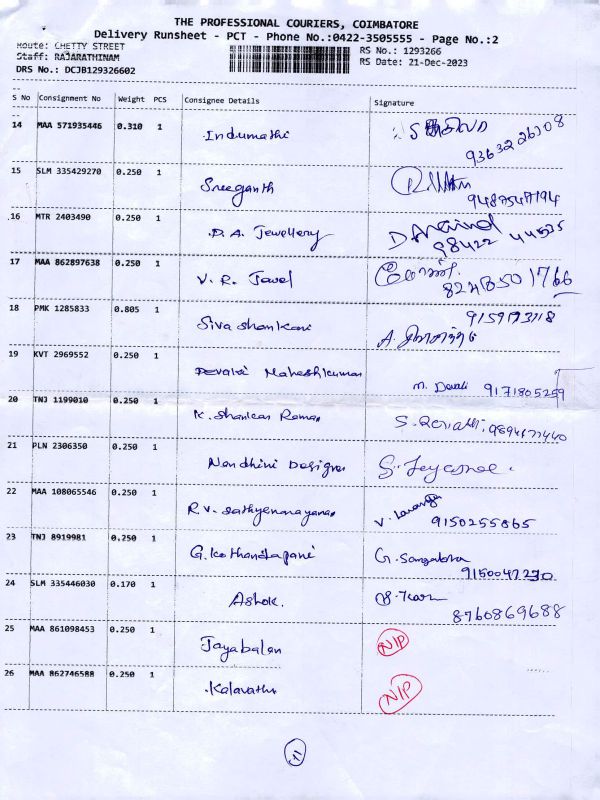 THE PROFESSIONAL COURIERS, COIMBATORE
Delivery Runsheet - PCT - Phone No.:0422-3505555 - Page No.:2
Route: CHETTY STREET
RS No.: 1293266
Staff: RAJARATHINAM
RS Date: 21-Dec-2023
DRS No.: DCJB129326602
S No Consignment No Weight PCS Consignee Details Signature
14 MAA 571935446 0.310 1 Indumathi
9363226208
15 SLM 335429270 0.250 1 Sreeganth
9487547194
16 MTR 2403490 0.250 1 D.A. Jewellery
98422 44535
17 MAA 862897638 0.250 1 V. R. Jewel
18 PMK 1285833 0.805 1 Siva shankari
19 KVT 2969552 0.250 1 Devaki Maheshkumar
M. Devaki 9171805259
20 TNJ 1199010 0.250 1 K. Shankar Raman
21 PLN 2306350 0.250 1 Nandhini Designer
22 MAA 108065546 0.250 1 R.V. Sathyanarayanan
9150255865
23 TNJ 8919981 0.250 1 G.Kothandapani
9150047270
24 SLM 335446030 0.170 1 Ashok.
8760869688
25 MAA 861098453 0.250 1 Jayabalan N/P
26 MAA 862746588 0.250 1 Kalavathi N/P